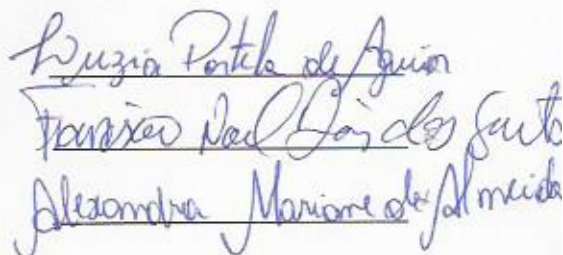 Luzia Portela de Aguiar
Francisco dos Santos
Alexandra Mariane de Almeida